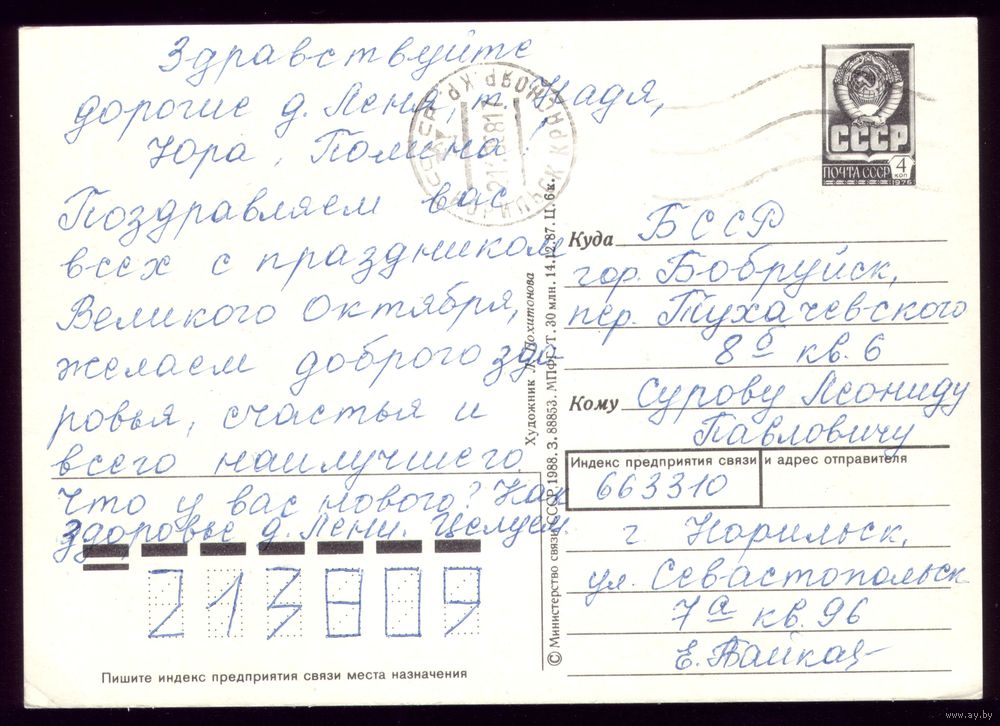 Здравствуйте
дорогие д. Лёня, т. Надя,
Юра, Полина!
Поздравляем вас
всех с праздником
Великого Октября,
желаем доброго здо-
ровья, счастья и
всего наилучшего.
Что у вас нового? Как
здоровье д. Лёни. Целуем.
213809
Пишите индекс предприятия связи места назначения
© Министерство связи СССР, 1988. З. 88853. МПФГ. Т. 30 млн. 14.12.87. Ц. 6 к.
Художник
СССР
ПОЧТА СССР 4 коп
1976
Куда БССР
гор. Бобруйск,
пер. Тухачевского
8б кв. 6
Кому Сурову Леониду
Павловичу
Индекс предприятия связи и адрес отправителя
663310
г. Норильск,
ул. Севастопольск
7а кв. 96
www.ay.by